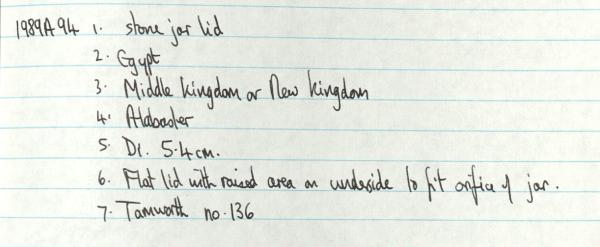 1989A94 1. stone jar lid
2. Egypt
3. Middle Kingdom or New Kingdom
4. Alabaster
5. DI. 5.4cm.
6. Flat lid with raised area on underside to fit orifice of jar.
7. Tamworth no. 136